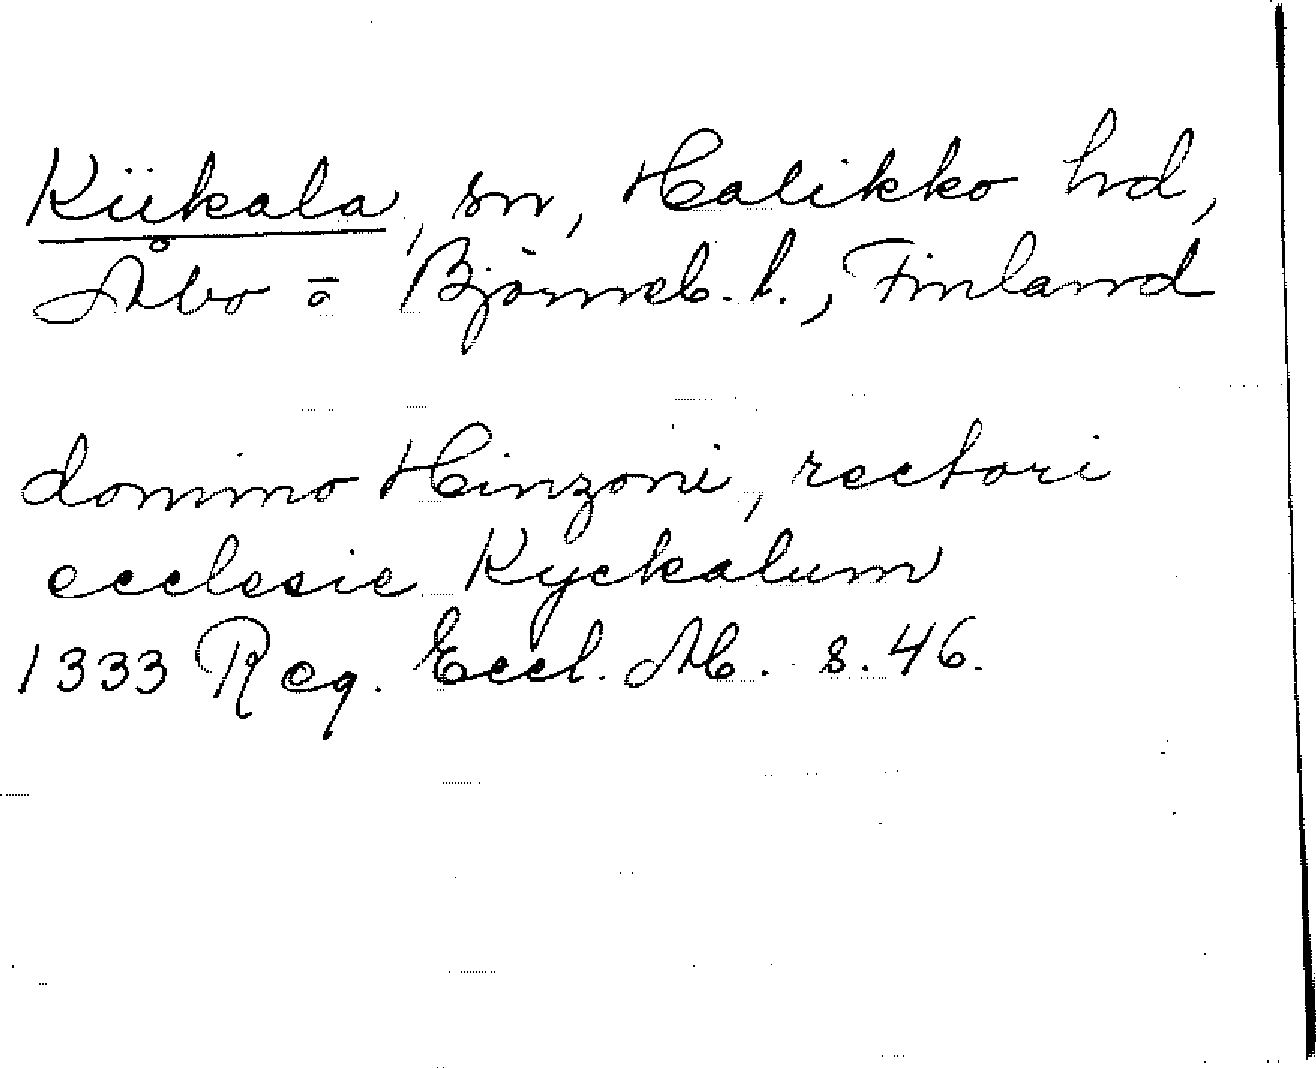 Kiikala, sn, Halikko hd,
Åbo o Björneb. l., Finland
domino Hinzoni, rectori
ecclesie Kyckalum
1333 Reg. Eccl. Ab. s. 46.